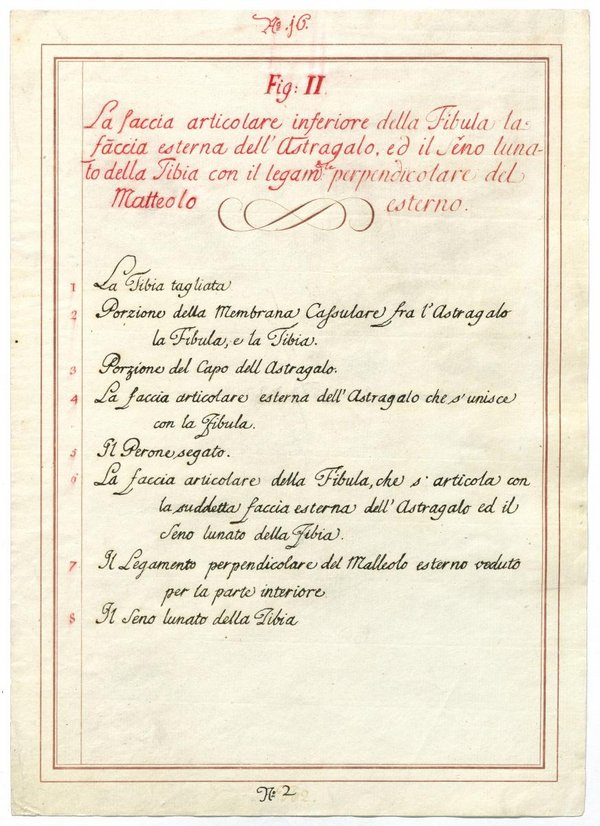 Nº. 16.
Fig: II.
La faccia articolare inferiore della Fibula la
faccia esterna dell'Astragalo, ed il Seno luna-
to della Tibia con il legamto perpendicolare del
Matteolo esterno.
1 La Tibia tagliata
2 Porzione della Membrana Cassulare fra l'Astragalo
la Fibula, e la Tibia.
3 Porzione del Capo dell Astragalo.
4 La faccia articolare esterna dell'Astragalo che s'unisce
con la Fibula.
5 Il Perone segato.
6 La faccia articolare della Fibula, che s'articola con
la suddetta faccia esterna dell'Astragalo ed il
Seno lunato della Tibia.
7 Il Legamento perpendicolare del Malleolo esterno veduto
per la parte interiore
8 Il Seno lunato della Tibia
Nº. 2